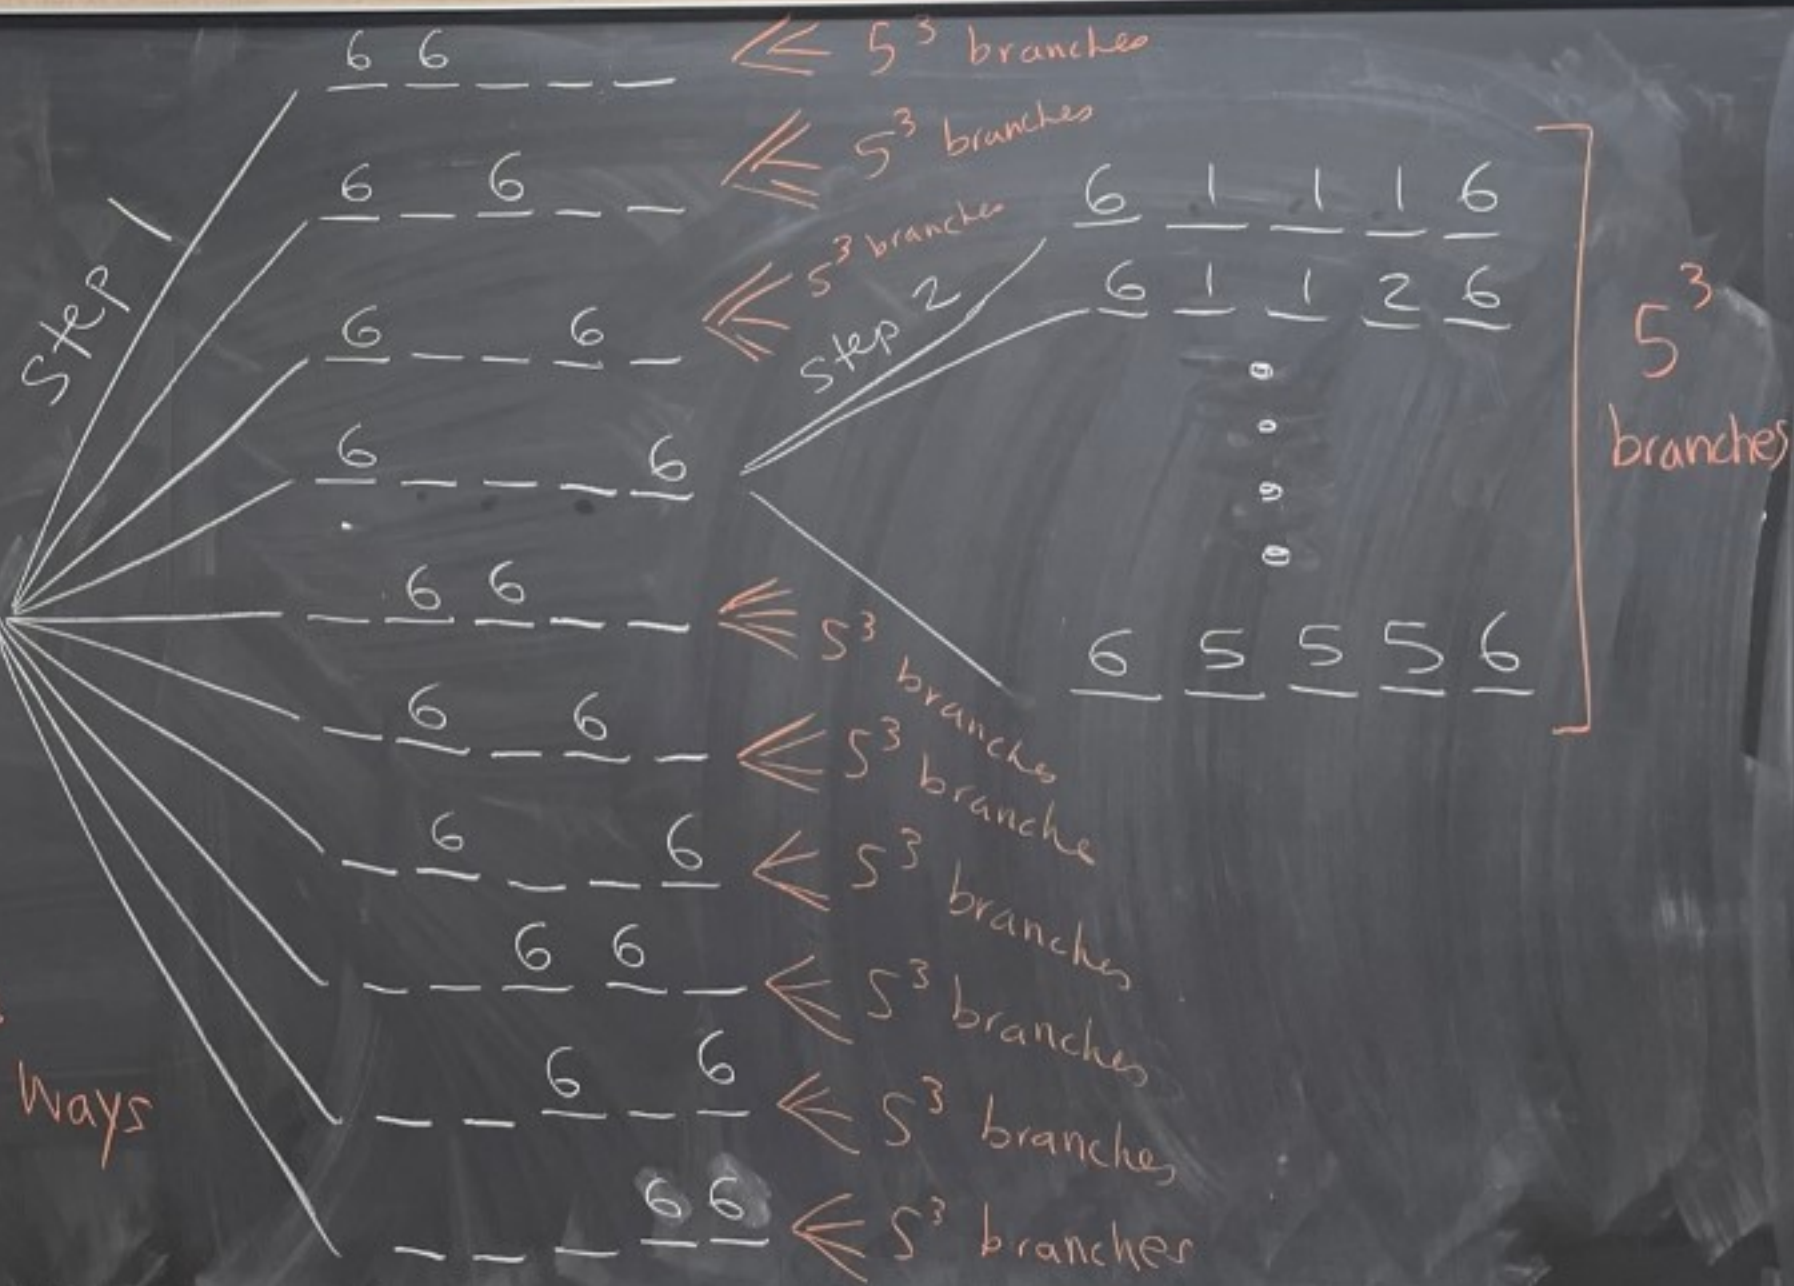 Step 1
6 6 _ _ _
5³ branches
6 _ 6 _ _
5³ branches
6 _ _ 6 _
5³ branches
6 _ _ _ 6
Step 2
6 1 1 1 6
6 1 1 2 6
6 5 5 5 6
5³
branches
_ 6 6 _ _
5³ branches
_ 6 _ 6 _
5³ branche
_ 6 _ _ 6
5³ branches
_ _ 6 6 _
5³ branches
_ _ 6 _ 6
5³ branches
_ _ _ 6 6
5³ branches
Ways